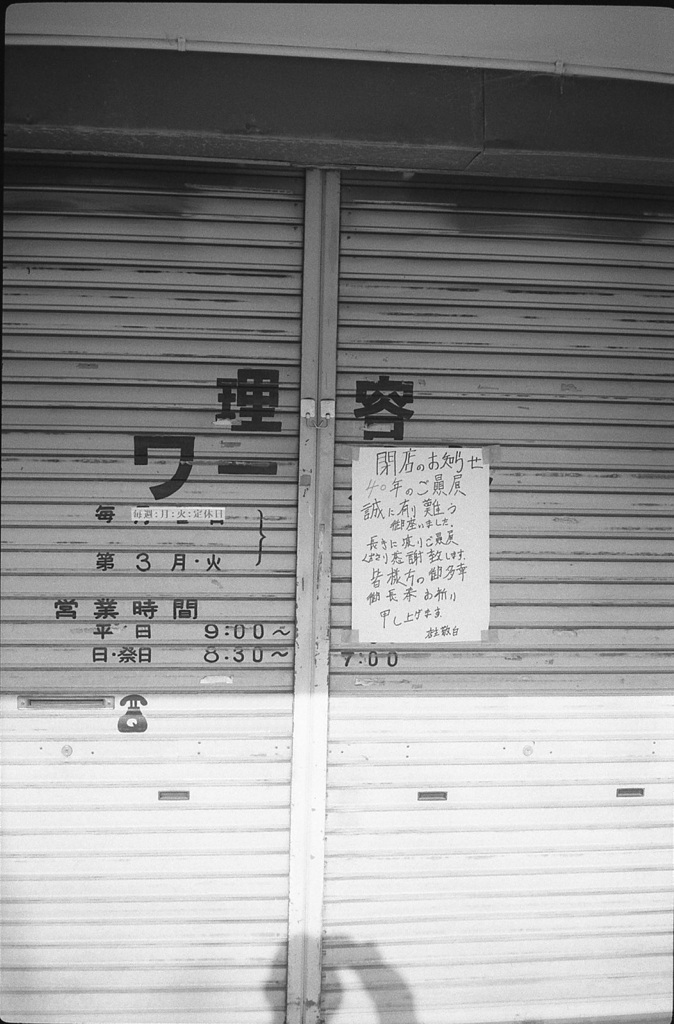 理 容
ワニ
毎
毎週:月:火:定休日
第3月・火
営業時間
平日 9:00～
日・祭日 8:30～
7:00
閉店のお知らせ
40年のご贔屓
誠に有難う
御座いました。
長きに渡りご贔屓
くださり感謝致します。
皆様方の御多幸
御長寿お祈り
申し上げます。
店主敬白